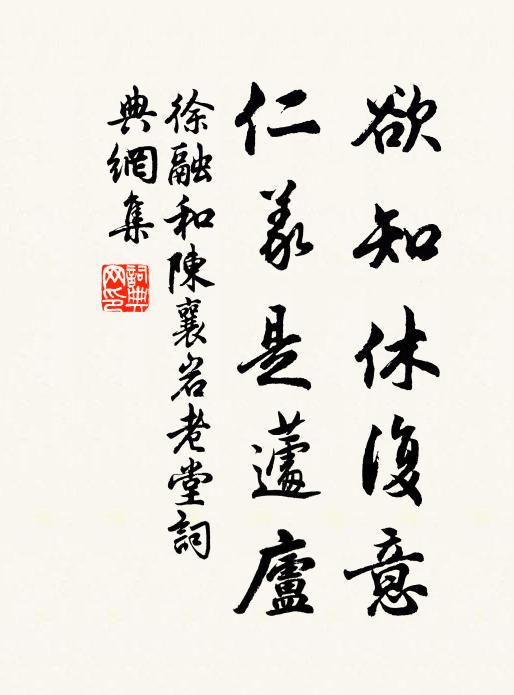 欲知休復意
仁義是蘧廬
徐融和陳襄岩老堂詞
典網集
詞典網印